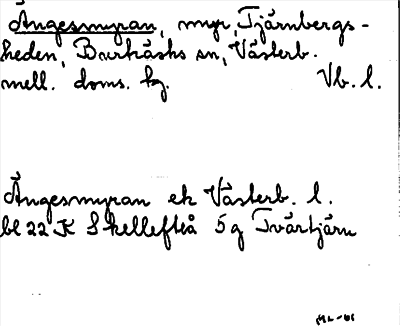 Ängesmyran, myr, Tjärnbergs-
heden, Burträsks sn, Västerb.
mell. doms. hg. Vb. l.
Ängesmyran ek Västerb. l.
bl 22 K Skellefteå 5g Tvärtjärn